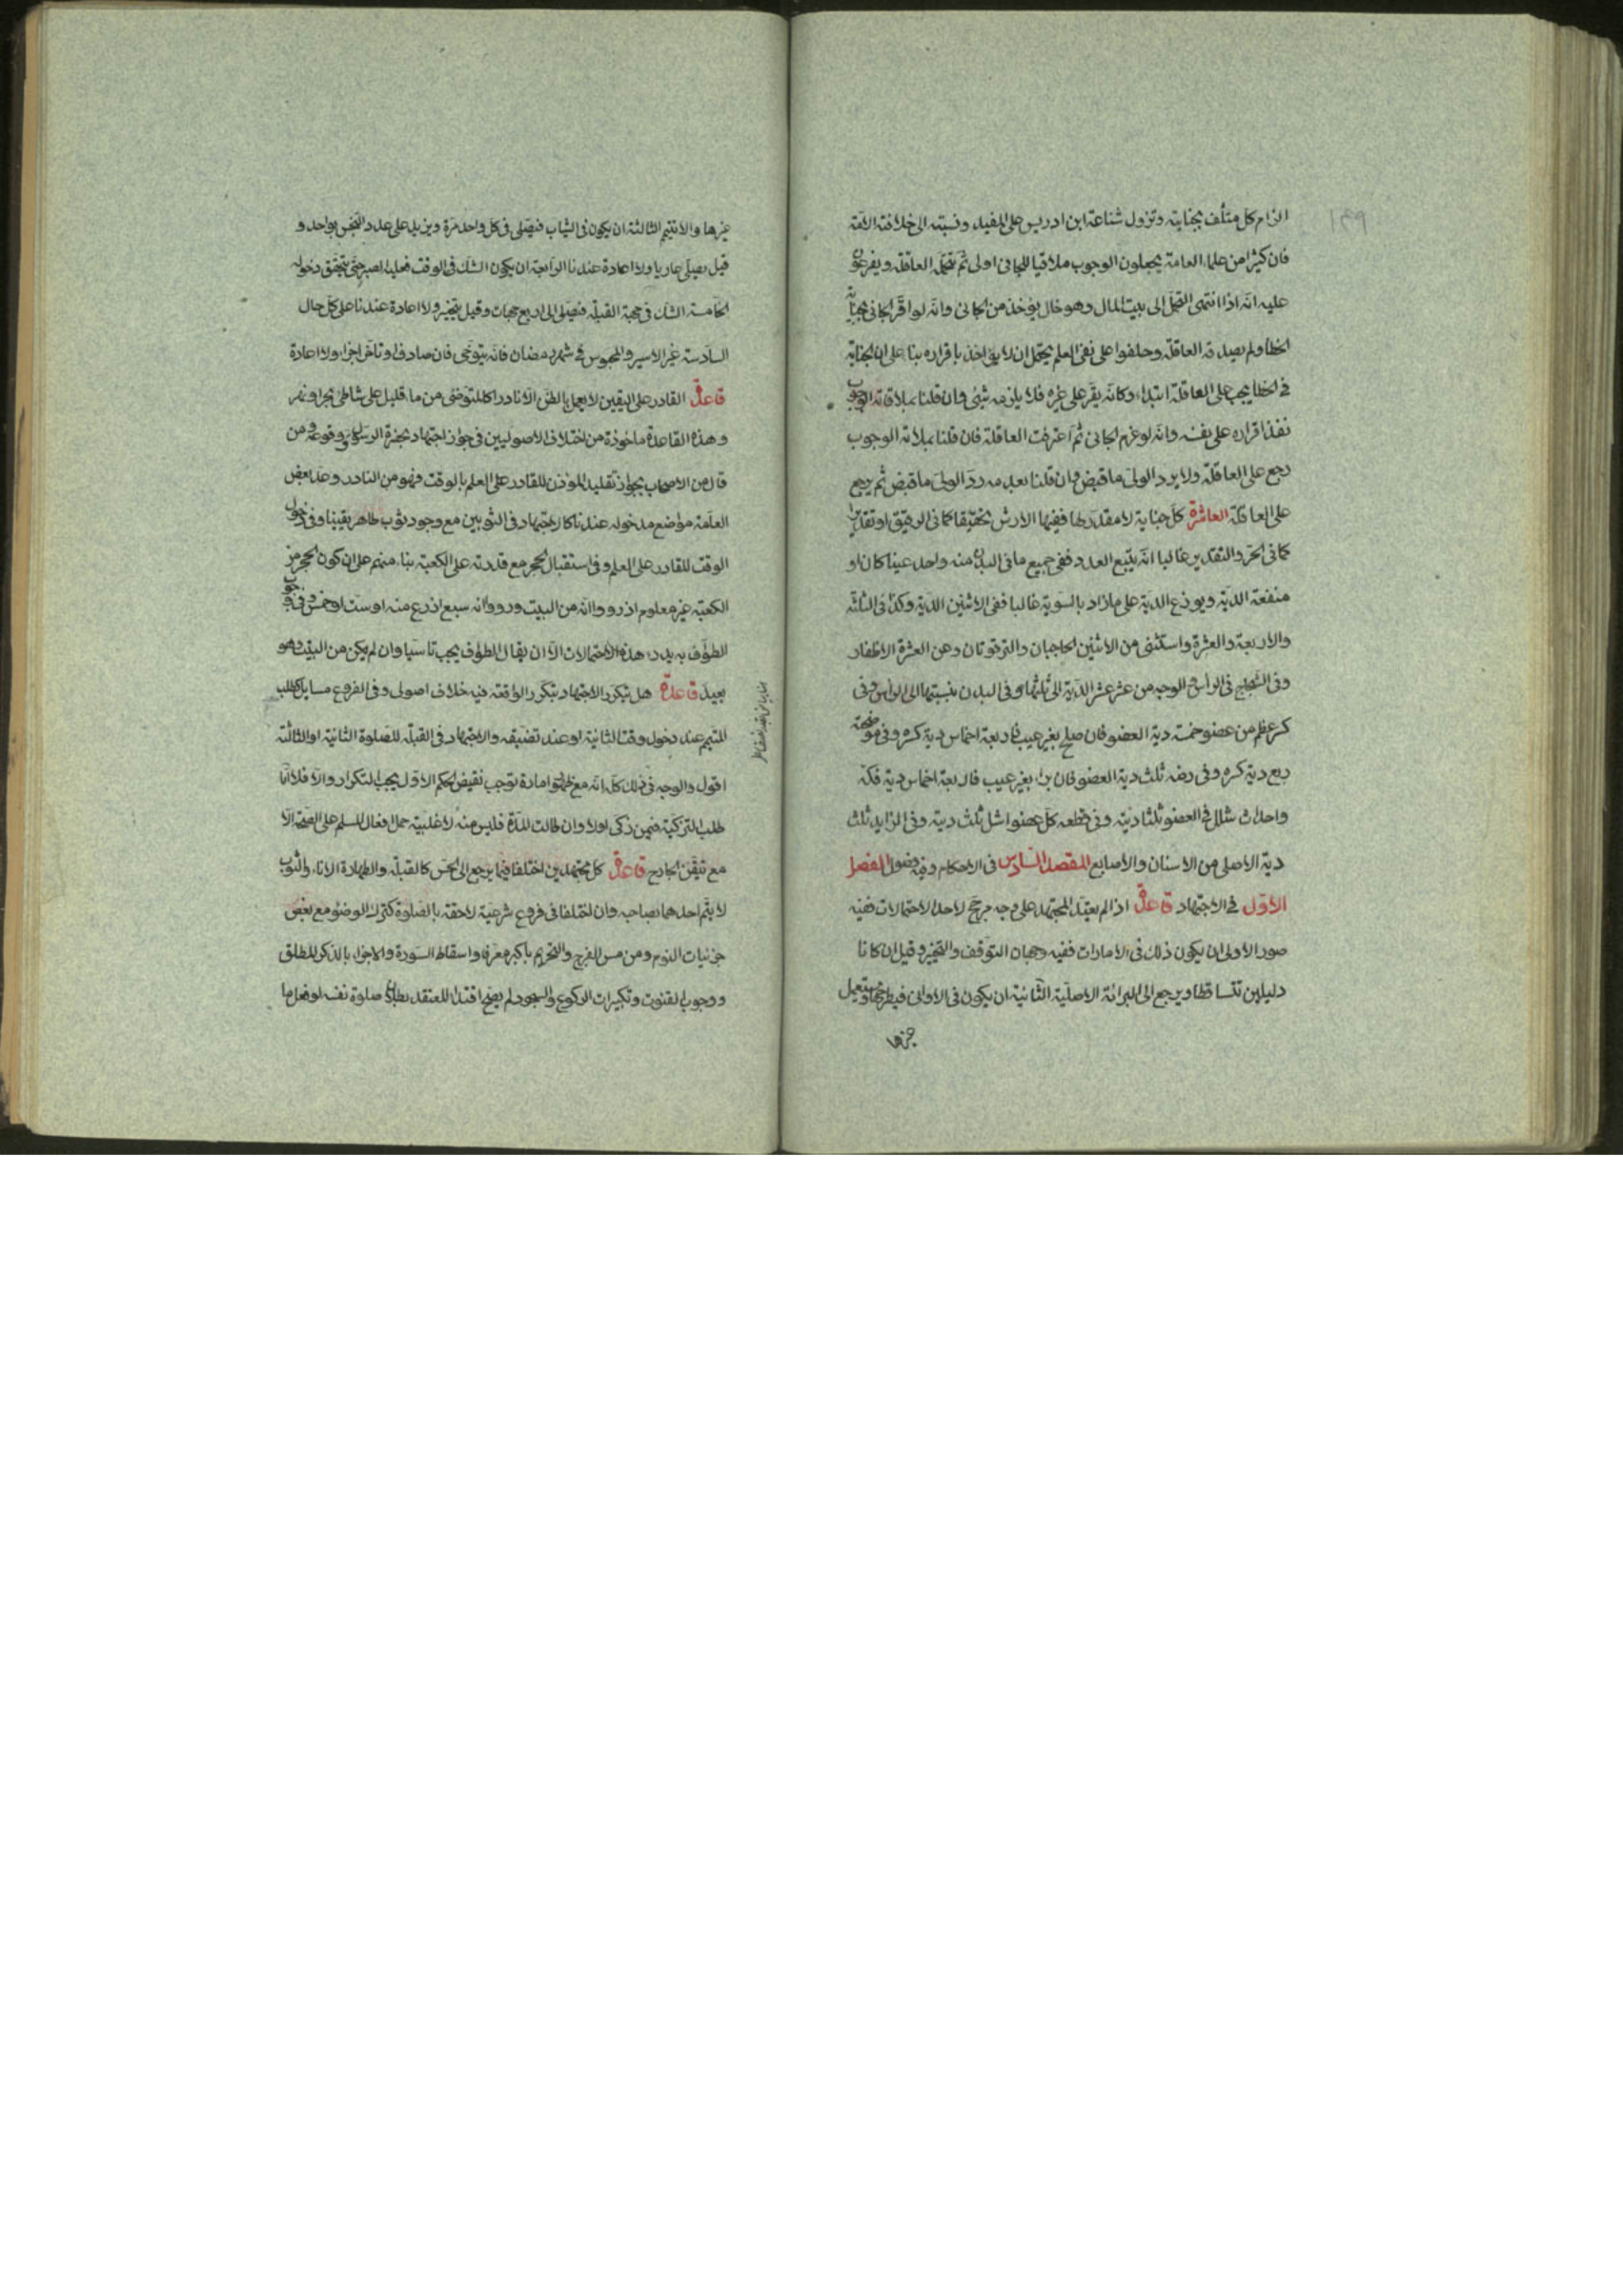 ١٤٩
الزام كل متلف بجنايته وتزول شناعة ابن ادريس على المفيد ونسبته الى خلافة الائمة
فان كثيرا من علماء العامة يجعلون الوجوب ملاقيا للجانى اولى ثم تتحمله العاقلة ويفرعون
عليه انه اذا انتهى التحمل الى بيت المال وهو خال يؤخذ من الجانى وانه لو اقر الجانى بجناية
الخطا ولم يصدقه العاقلة وحلفوا على نفى العلم يحتمل ان لا يؤاخذ باقراره بناء على ان الجناية
فى الخطا يجب على العاقلة ابتداء وكانه يقر على غيره فلا يلزمه شئ وان قلنا بملاقاته الوجوب
نفذ اقراره على نفسه وانه لو غرم الجانى ثم اعترفت العاقلة فان قلنا بملاقة الوجوب
رجع على العاقلة ولا يرد الولى ما قبض وان قلنا بعدمه رد الولى ما قبض ثم يرجع
على العاقلة العاشرة كل جناية لا مقدر لها ففيها الارش تحقيقا كما فى الرقيق او تقديرا
كما فى الحر والتقدير غالبا انه يتبع العدد ففى جميع ما فى البدن منه واحد عينا كان او
منفعة الدية ويوزع الدية على ما زاد بالسوية غالبا ففى الاثنين الدية وكذا فى الثلثة
والاربعة والعشرة واستثنى من الاثنين الحاجبان والترقوتان ومن العشرة الاظفار
وفى الشجاج فى الراس والوجه من عشر عشر الدية الى ثلثها وفى البدن بنسبتها الى الراس وفى
كسر عظم من عضو خمسة دية العضو فان صلح بغير عيب فاربعة اخماس دية كسره وفى موضحته
ربع دية كسره وفى رضه ثلث دية العضو فان برا بغير عيب فاربعة اخماس دية فكه
واحداث شلل فى العضو ثلثا ديته وفى قطعه كل عضو اشل ثلث ديته وفى الزايد ثلث
دية الاصلى من الاسنان والاصابع المقصد السادس فى الاحكام وفيه فصول الفصل
الاول فى الاجتهاد قاعدة اذا لم يعتد المجتهد على وجه مرجح لاحد الاحتمالات ففيه
صور الاولى ان يكون ذلك فى الامارات ففيه وجهان التوقف والتخير وقيل ان كانا
دليلين تتساقطا ويرجع الى البرائة الاصلية الثانية ان يكون فى الاوانى فيطرحها ويستعمل
غيرها
غيرها والا تتيمم الثالثة ان يكون فى الثياب فيصلى فى كل واحد مرة ويزيد على عدد النجس بواحد و
قيل يصلى عاريا ولا اعادة عندنا الرابعة ان يكون الشك فى الوقت فعليه الصبر حتى يتحقق دخوله
الخامسة الشك فى جهة القبلة فيصلى الى اربع جهات وقيل يتخير ولا اعادة عندنا على كل حال
السادسة غير الاسير والمحبوس فى شهر رمضان فانه يتوخى فان صادف او تاخر اجزاء ولا اعادة
قاعدة القادر على اليقين لا يعمل بالظن الا نادرا كالمتوضئ من ماء قليل على شاطئ بحر او نهر
وهذه القاعدة ماخوذة من اختلاف الاصوليين فى جواز اجتهاد بحضرة الرسول ووقوعه ومن
قال من الاصحاب بجواز تقليد المؤذن للقادر على العلم بالوقت فهو من النادر وعد بعض
العامة مواضع مدخوله عندنا كالاجتهاد فى الثوبين مع وجود ثوب طاهر يقينا وفى دخول
الوقت للقادر على العلم وفى استقبال الحجر مع قدرته على الكعبة بناء منهم على ان كون الحجر من
الكعبة غير معلوم اذ رووا انه من البيت ورووا انه سبع اذرع منه او ست او خمس وفى وجوب
الطواف به يدرء هذه الاحتمالات الا ان يقال الطواف يجب تاسيا وان لم يكن من البيت وهو
بعيد قاعدة هل يتكرر الاجتهاد بتكرر الواقعة فيه خلاف اصولى وفى الفروع مسايل كطلب
المتيمم عند دخول وقت الثانية او عند تضيقه والاجتهاد فى القبلة للصلوة الثانية او الثالثة
اقول والوجه فى ذلك كله انه مع ظهور امارة توجب نقيض الحكم الاول يجب التكرار والا فلا اما
طلب التزكية فيمن زكى اولا وان طالت المدة فليس منه لاغلبية حمل افعال المسلم على الصحة الا
مع تيقن الجارح قاعدة كل مجتهدين اختلفا فيما يرجع الى الحس كالقبلة والطهارة الاناء والثوب
لا ياتم احدهما بصاحبه وان اختلفا فى فروع شرعية لاحقة بالصلوة كترك الوضوء مع بعض
جزئيات النوم ومن مس الفرج والتحريم باكبر معرفا واسقاط السورة والاجزاء بالذكر المطلق
ووجوب القنوت وتكبيرات الركوع والسجود لم يصح اقتداء المعتقد بطلان صلوة نفسه لو فعل ما